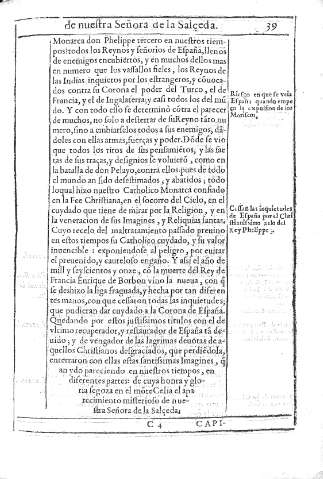 de nuestra Señora de la Salçeda. 39
Monarca don Phelippe tercero en nuestros tiem
pos: todos los Reynos y señorios de España, llenos
de enemigos encubiertos, y en muchos dellos mas
en numero que los vassallos fieles, los Reynos de
las Indias inquietos por los estrangeros, y cõuoca-
dos contra su Corona el poder del Turco, el de
Francia, y el de Ingalaterra, y casi todos los del mũ
do. Y con todo esso se determinò cõtra el parecer
de muchos, no solo a desterrar de su Reyno tãto nu
mero, sino a embiarselos todos a sus enemigos, dã-
doles con ellas armas, fuerças y poder. Dõde se vio
que todos los tiros de sus pensamiẽtos, y las sae
tas de sus traças, y designios se voluierõ, como en
la batalla de don Pelayo, contra ellos. pues de todo
el mundo an sido desestimados, y abatidos; todo
lo qual hizo nuestro Catholico Monarca confiado
en la Fee Christiana, en el socorro del Cielo, en el
cuydado que tiene de mirar por la Religion, y en
la veneracion de sus Imagines, y Reliquias santas.
Cuyo recelo del maltratamiento passado preuino
en estos tiempos su Catholico cuydado, y su valor
inuencible: exponiendose al peligro, por euitar
el preuenido, y cauteloso engaño. Y assi el año de
mill y seyscientos y onze, cõ la muerte del Rey de
Francia Enrique de Borbon vino la nueua, con q̃
se deshizo la liga fraguada, y hecha por tan diferen
tes manos, con que cessaron todas las inquietudes;
que pudieran dar cuydado a la Corona de España.
Quedando por estos justissimos titulos con el de
vltimo recuperador, y restaurador de España tã de-
uido; y de vengador de las lagrimas deuotas de a-
quellos Christianos desgraciados, que perdiẽdola,
enterraron con ellas estas santissimas Imagines, q̃
an ydo pareciendo en nuestros tiempos, en
diferentes partes: de cuya honra y glo-
ria segoza en el mõte Celia el apa
recimiento misterioso de nue-
stra Señora de la Salçeda.
Riesgo en que se vela
España quando empe
en la expulsion de los
Moriscos.
Cessan las inquietudes
de España por el
zelo del
Rey Phelippe 3.
C 4 CAPI-